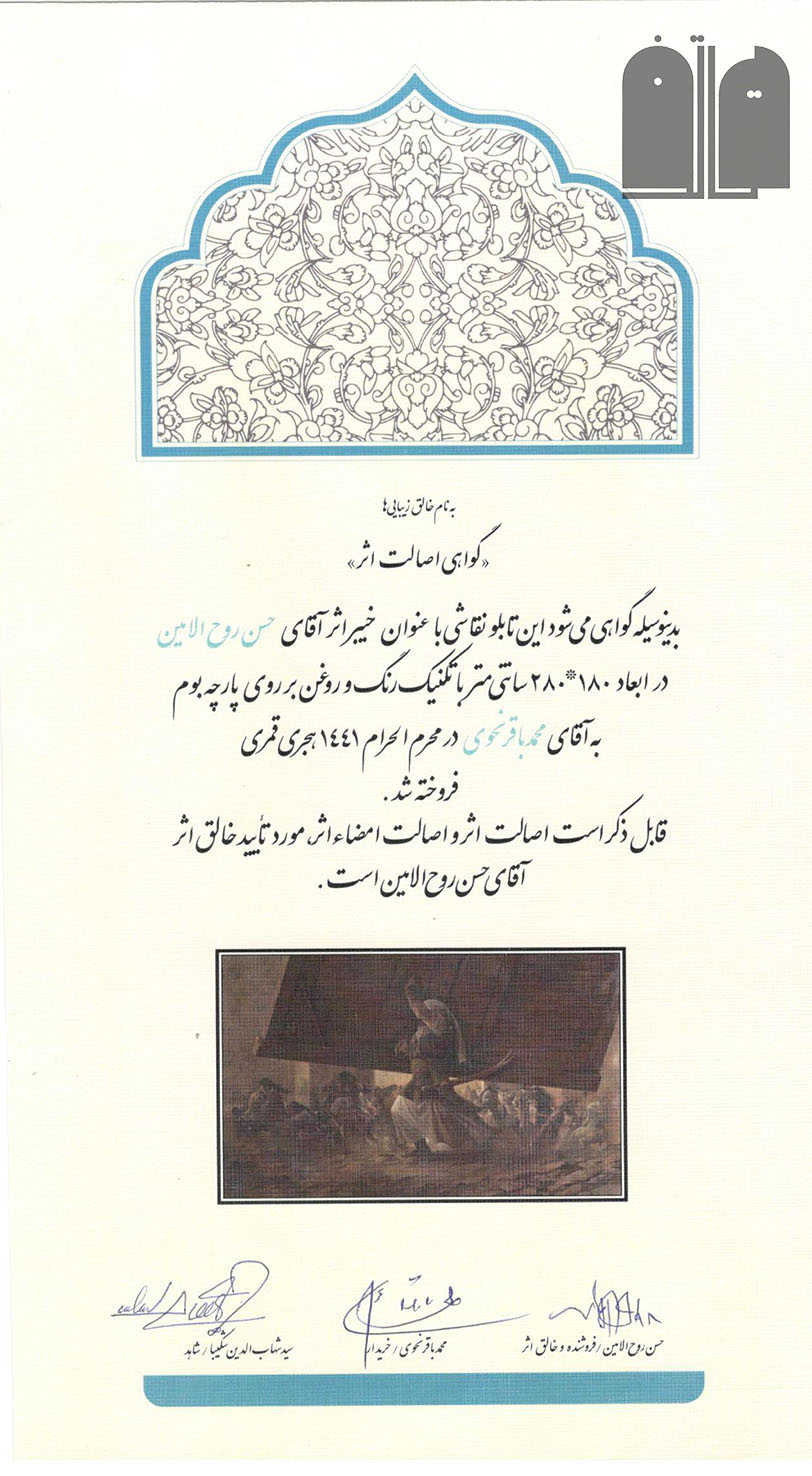 هاتف
به نام خالق زیبایی‌ها
«گواهی اصالت اثر»
بدینوسیله گواهی می‌شود این تابلو نقاشی با عنوان خیبر اثر آقای حسن روح الامین
در ابعاد ۱۸۰*۲۸۰ سانتی‌متر با تکنیک رنگ و روغن بر روی پارچه بوم
به آقای محمدباقر نحوی در محرم الحرام ۱۴۴۱ هجری قمری
فروخته شد.
قابل ذکر است اصالت اثر و اصالت امضاء اثر، مورد تأیید خالق اثر
آقای حسن روح الامین است.
حسن روح الامین / فروشنده و خالق اثر
محمدباقر نحوی / خریدار
سید شهاب الدین شکیبا / شاهد